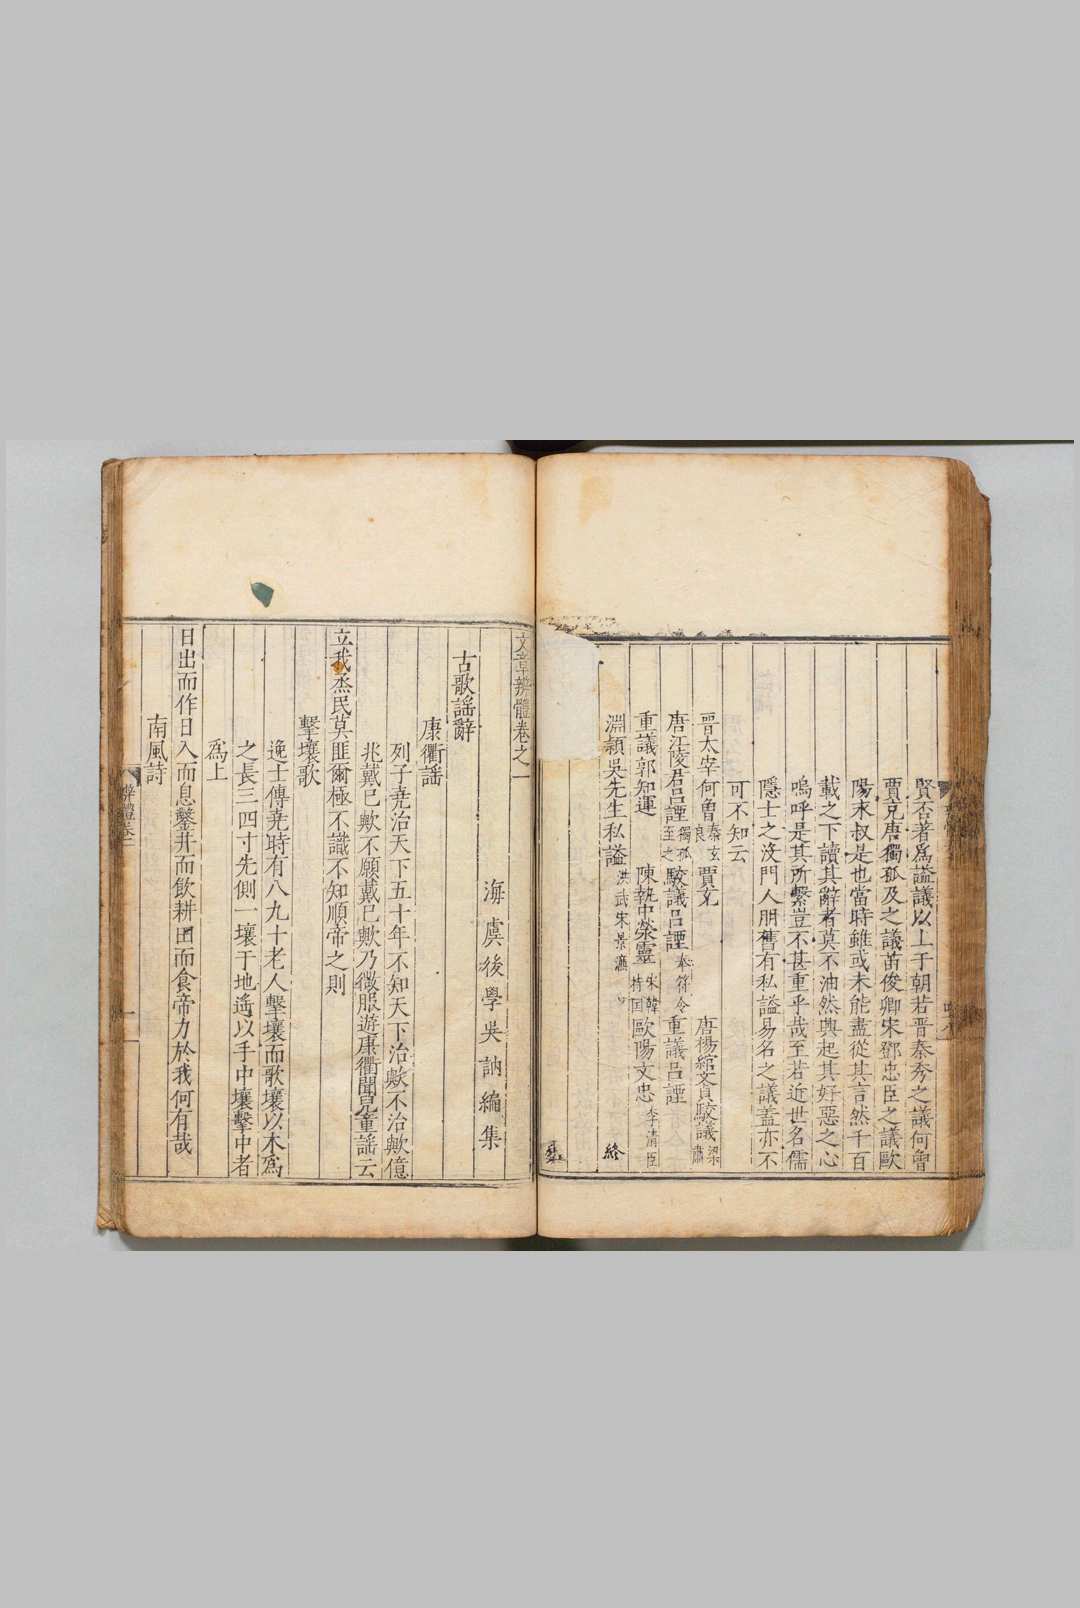 賢否著爲謚議以上于朝若晋秦秀之議何曾
賈充唐獨孤及之議苗俊卿宋鄧忠臣之議歐
陽永叔是也當時雖或未能盡從其言然千百
載之下讀其辭者莫不油然興起其好惡之心
嗚呼是其所繫豈不甚重乎哉至若近世名儒
隱士之沒門人朋舊有私謚易名之議蓋亦不
可不知云
晋太宰何曾秦玄良 賈充 唐楊綰文貞駮議梁肅
唐江陵君呂諲獨孤至之 駮議呂諲奉符令 重議呂諲
重議郭知運 陳執中榮靈宋韓持国 歐陽文忠李清臣
淵頴吳先生私謚洪武宋景濂 終
文章辨體卷之一
海虞後學吳訥編集
古歌謡辭
康衢謡
列子堯治天下五十年不知天下治歟不治歟億
兆戴己歟不願戴己歟乃微服遊康衢聞兒童謡云
立我烝民莫匪爾極不識不知順帝之則
擊壤歌
逸士傳堯時有八九十老人擊壤而歌壤以木爲
之長三四寸先側一壤于地遙以手中壤擊中者
爲上
日出而作日入而息鑿井而飲耕田而食帝力於我何有哉
南風詩
辨體卷一
一